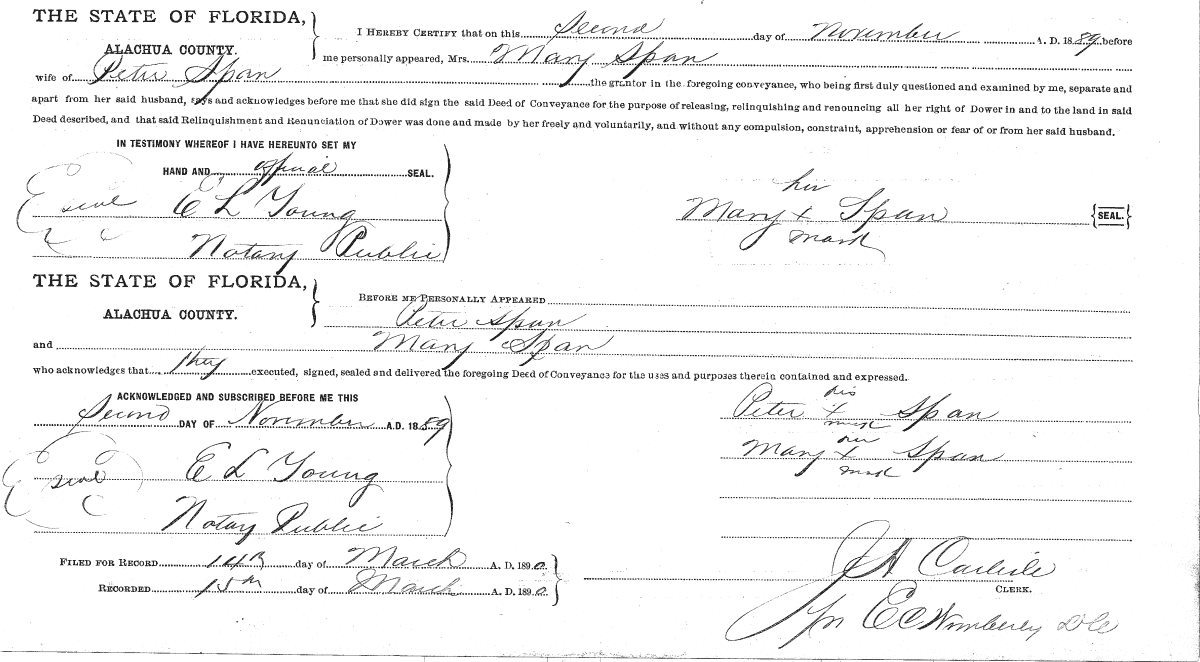 THE STATE OF FLORIDA,
ALACHUA COUNTY.
I HEREBY CERTIFY that on this Second day of November A. D. 1889 before
me personally appeared, Mrs. Mary Span
wife of Peter Span the grantor in the foregoing conveyance, who being first duly questioned and examined by me, separate and
apart from her said husband, says and acknowledges before me that she did sign the said Deed of Conveyance for the purpose of releasing, relinquishing and renouncing all her right of Dower in and to the land in said
Deed described, and that said Relinquishment and Renunciation of Dower was done and made by her freely and voluntarily, and without any compulsion, constraint, apprehension or fear of or from her said husband.
IN TESTIMONY WHEREOF I HAVE HEREUNTO SET MY
HAND AND official SEAL.
seal E L Young
Notary Public
her
Mary x Span {SEAL.}
mark
THE STATE OF FLORIDA,
ALACHUA COUNTY.
BEFORE ME PERSONALLY APPEARED
Peter Span
and Mary Span
who acknowledges that they executed, signed, sealed and delivered the foregoing Deed of Conveyance for the uses and purposes therein contained and expressed.
ACKNOWLEDGED AND SUBSCRIBED BEFORE ME THIS
Second DAY OF November A.D. 1889
seal E L Young
Notary Public
his
Peter x Span
mark
her
Mary x Span
mark
FILED FOR RECORD 14th day of March A. D. 1890.
RECORDED 15th day of March A. D. 1890.
J A Carlisle
CLERK.
Pr E C Wimberly D C